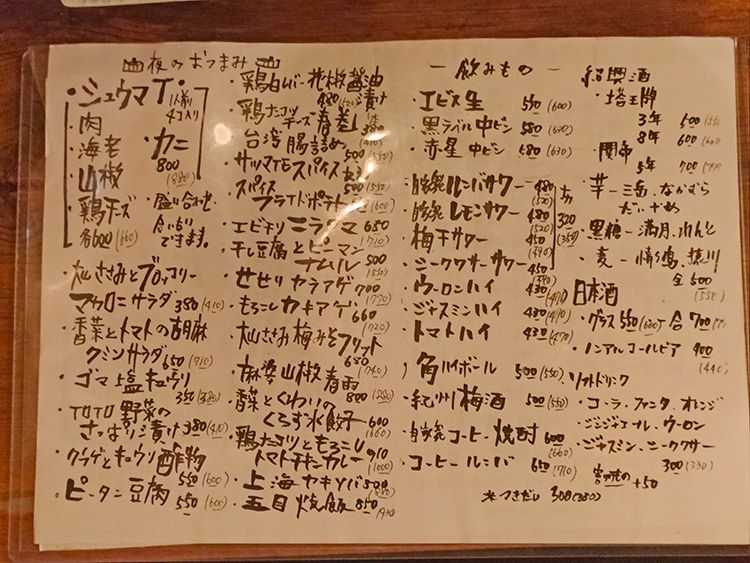 夜のおつまみ
・シュウマイ・
1人前
4コ入り
・肉
・海老
・山椒
・鶏チーズ
各600 (660)
・カニ
800
(880)
・盛り合わせ
合いもり
できます。
・大山ささみとブロッコリー
マカロニサラダ 380 (410)
・香菜とトマトの胡麻
クミンサラダ 650 (710)
・ゴマ塩キュウリ
350 (380)
・トロトロ野菜の
さっぱり漬け 380 (410)
・クラゲとキュウリ酢物
550 (600)
・ピータン豆腐
550 (600)
・鶏白レバー花椒醤油
漬け
480 (520)
・鶏ナンコツ
チーズ春巻
380
(410)
・台湾腸詰め
500 (550)
・サツマイモスパイス
・スパイス
フライドポテト
500 (550)
・エビチリニラマヨ 650
(710)
・干し豆腐とピーマン
ナムル 500
(550)
・せせりカラアゲ 700
(770)
・もろこしカキアゲ
660
(720)
・大山ささみ梅みそフリット
680
(740)
・麻婆山椒春雨
800 (880)
・香菜とくわいの
くろず水餃子 600
(660)
・鶏ナンコツともろこし
トマトチキンカレー 910
(1000)
・上海ヤキソバ 800
(880)
・五目焼飯 850
ー 飲みもの ー
・エビス生 550 (600)
・黒ラベル中ビン 580 (630)
・赤星中ビン 580 (630)
・自家製ルンバサワー 480
(520)
・自家製レモンサワー 480
(520)
・梅干サワー 450
(490)
・シークワサーサワー 450
(490)
ナカ
320
(350)
・ウーロンハイ 430 (470)
・ジャスミンハイ 430 (470)
・トマトハイ 430 (470)
・角ハイボール 500 (550)
・紀州梅酒 500 (550)
・自家製コーヒー焼酎 600
(660)
・コーヒールンバ 650 (710)
※つきだし 300 (330)
・紹興酒
・塔王牌
3年 500 (550)
8年 600 (660)
・関帝
5年 700 (770)
・芋ー三岳、ながむら
だいやめ
・黒糖ー満月、れんと
・麦ー情け嶋、猿川
全500
(550)
・日本酒
・グラス 550 (600) 合 700 (770)
・ノンアルコールビア 400
(440)
・ソフトドリンク
・コーラ、ファンタ、オレンジ
・ジンジャエール、ウーロン
・ジャスミン、シークワサー
300 (330)
+50